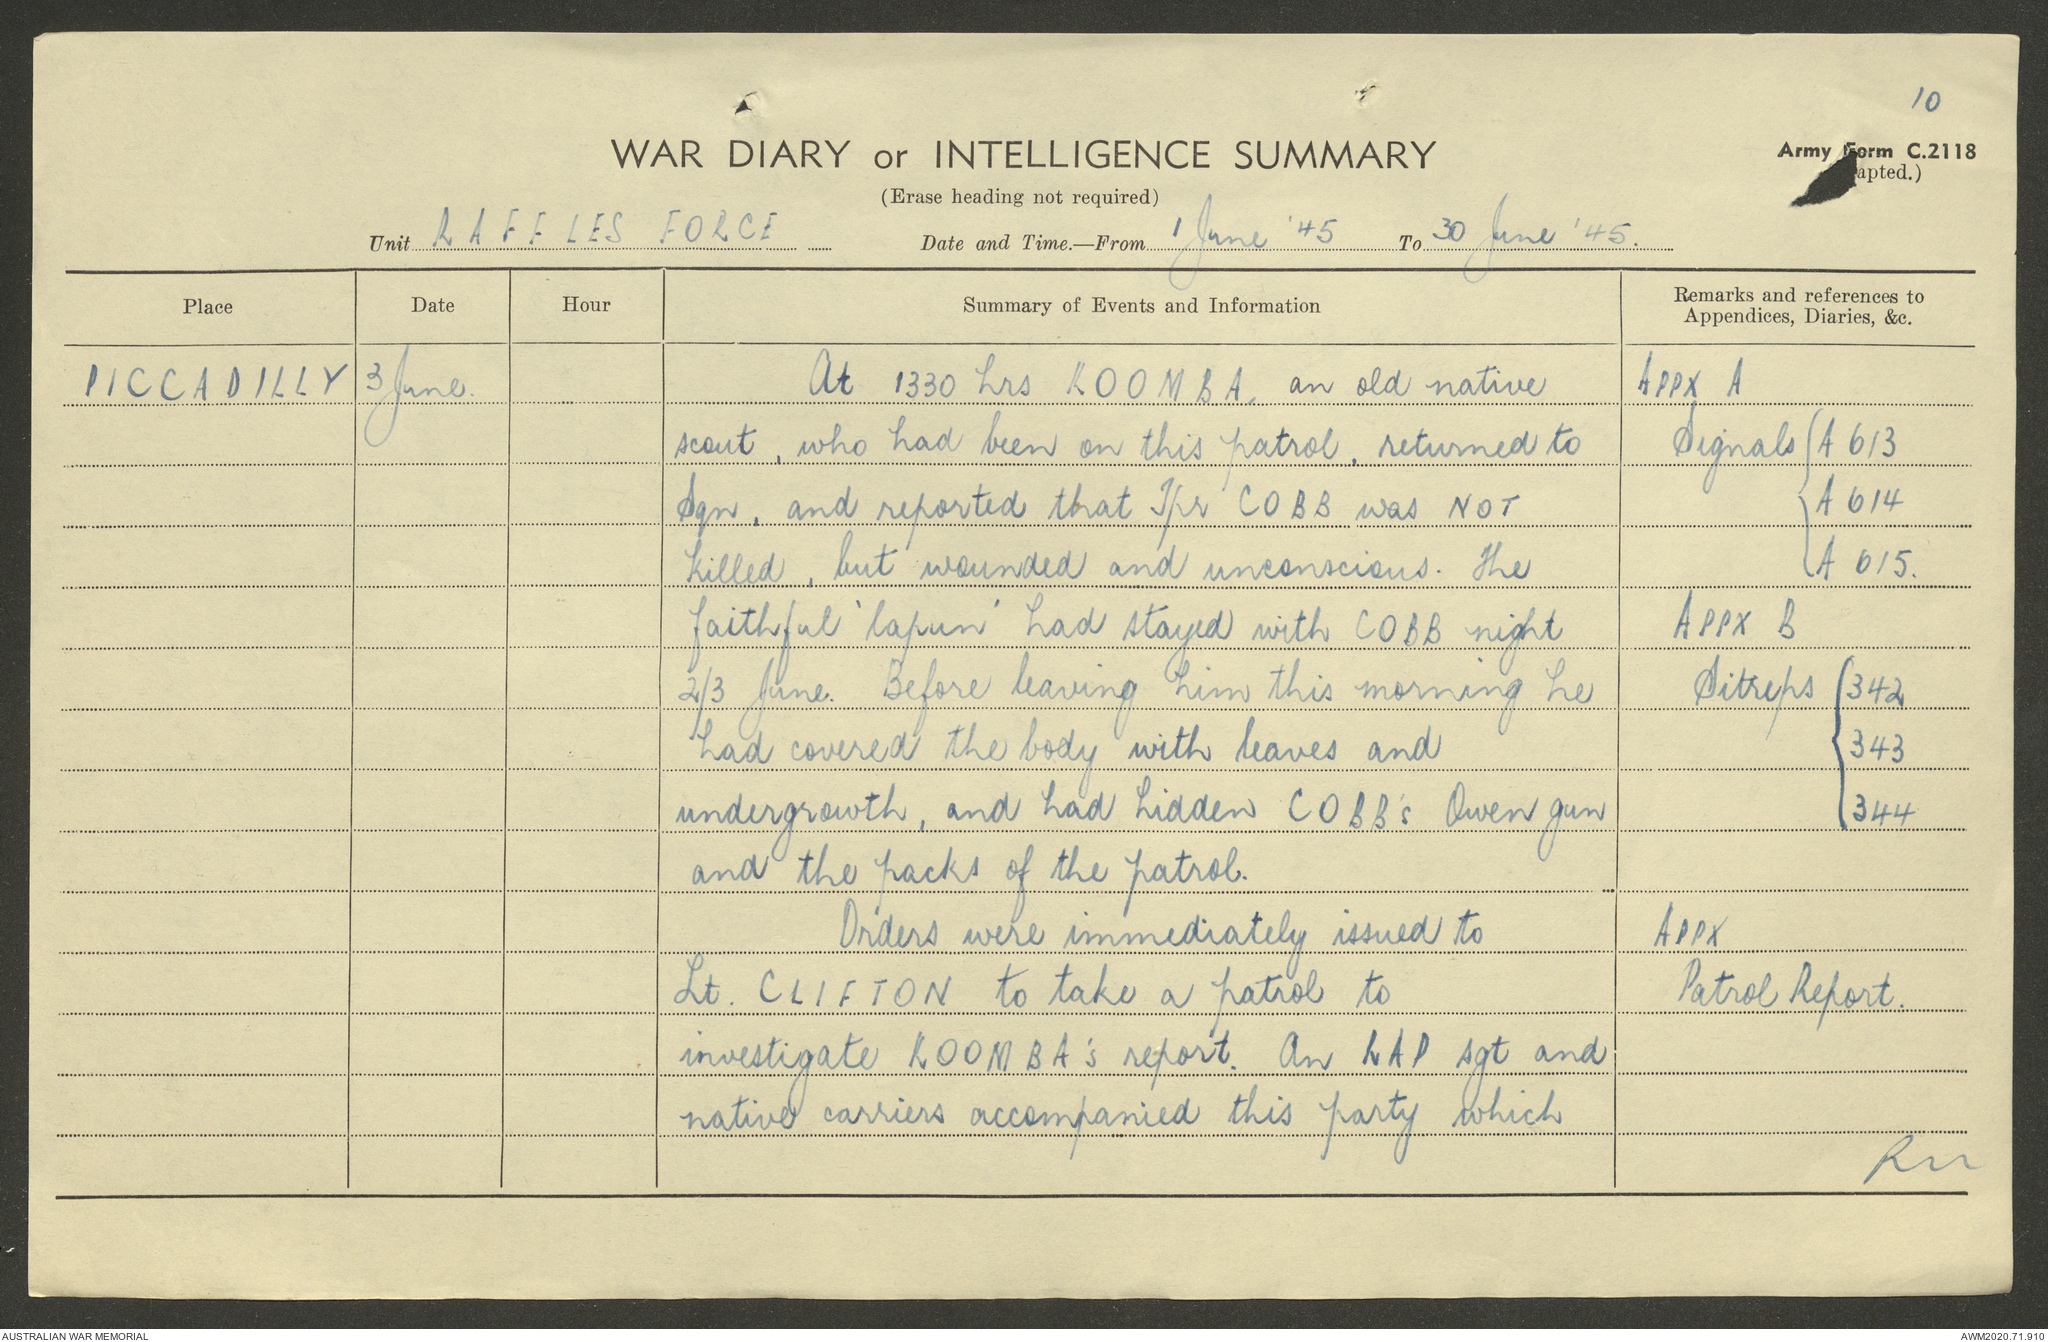 10
WAR DIARY or INTELLIGENCE SUMMARY
Army Form C.2118
(Erase heading not required)
apted.)
Unit RAFFLES FORCE Date and Time.—From 1 June '45 To 30 June '45.
Place Date Hour Summary of Events and Information Remarks and references to
Appendices, Diaries, &c.
PICCADILLY 3 June. At 1330 hrs KOOMBA, an old native APPX A
scout, who had been on this patrol, returned to Signals A 613
Sqn, and reported that Tpr COBB was NOT A 614
killed, but wounded and unconscious. The A 615.
faithful 'lapun' had stayed with COBB night APPX B
2/3 June. Before leaving him this morning he Sitreps 342
had covered the body with leaves and 343
undergrowth, and had hidden COBB's Owen gun 344
and the packs of the patrol.
Orders were immediately issued to APPX
Lt. CLIFTON to take a patrol to Patrol Report.
investigate KOOMBA's report. An RAP sgt and
native carriers accompanied this party which
AUSTRALIAN WAR MEMORIAL AWM2020.71.910